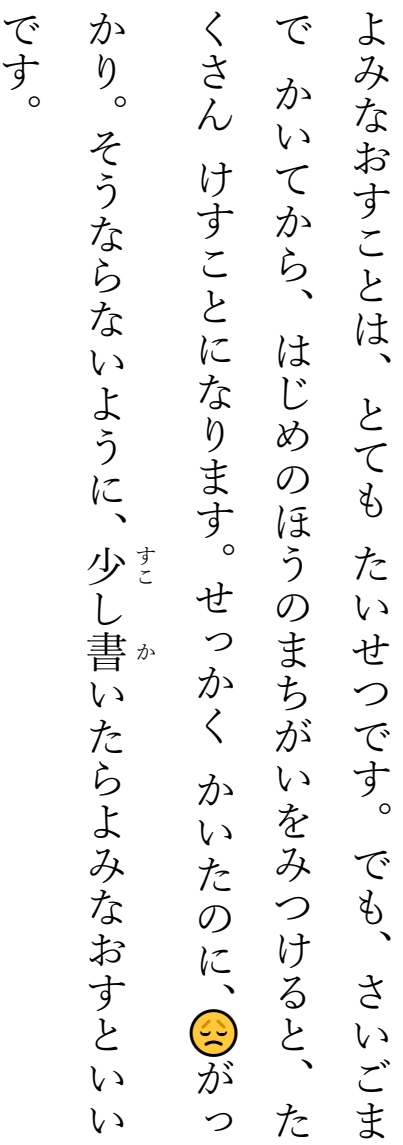 よみなおすことは、とても たいせつです。でも、さいごま
で かいてから、はじめのほうのまちがいをみつけると、た
くさん けすことになります。せっかく かいたのに、😞がっ
かり。そうならないように、少し書いたらよみなおすといい
です。